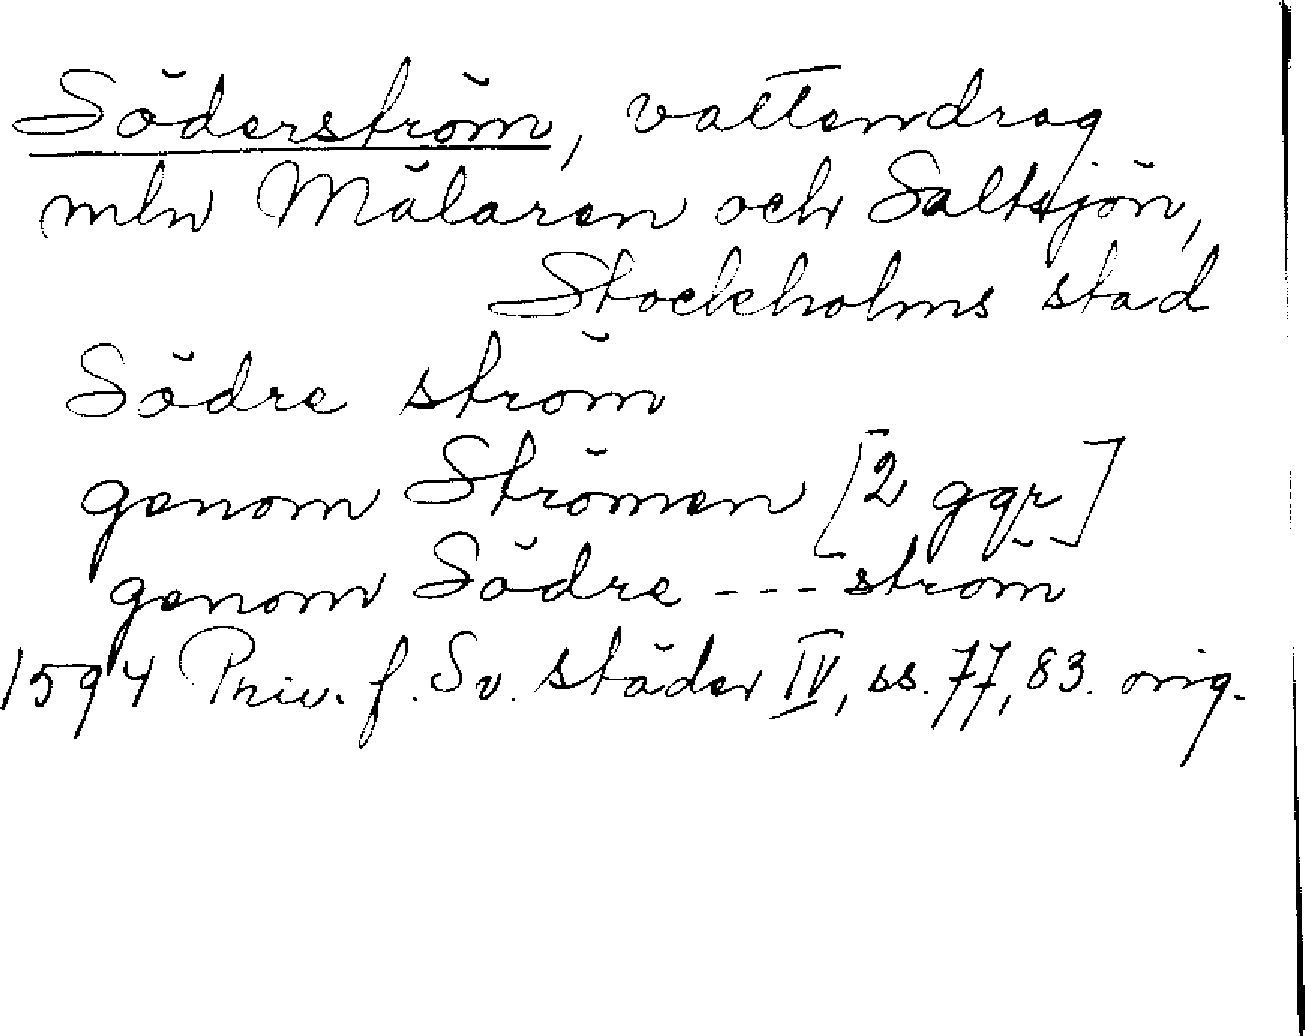 Söderström, vattendrag
mln Mälaren och Saltsjön,
Stockholms stad
Södre ström
genom Strömen [2 ggr]
genom Södre --- ström
1594 Priv. f. Sv. städer IV, ss. 77, 83. orig.